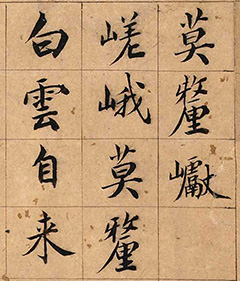 莫釐巘
嵯峨莫釐
白雲自来